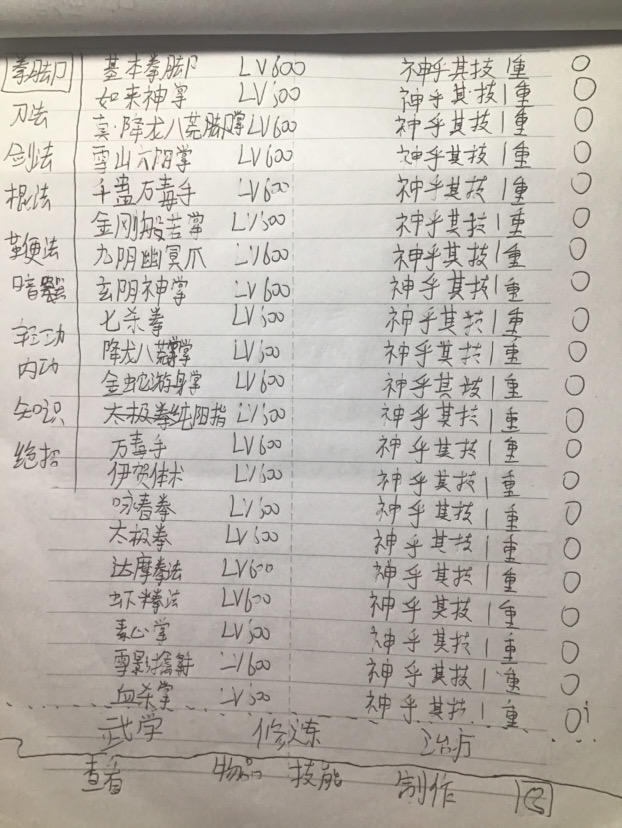 拳脚 基本拳脚 LV600 神乎其技1重 0
如来神掌 LV500 神乎其技1重 0
刀法 真·降龙八荒脚掌 LV600 神乎其技1重 0
剑法 雪山六阳掌 LV600 神乎其技1重 0
棍法 千蛊万毒手 LV600 神乎其技1重 0
金刚般若掌 LV500 神乎其技1重 0
鞭法 九阴幽冥爪 LV600 神乎其技1重 0
暗器 玄阴神掌 LV600 神乎其技1重 0
七杀拳 LV500 神乎其技1重 0
轻功 降龙八荒掌 LV500 神乎其技1重 0
内功 金蛇游身掌 LV600 神乎其技1重 0
知识 太极拳纯阳指 LV500 神乎其技1重 0
绝招 万毒手 LV600 神乎其技1重 0
伊贺体术 LV500 神乎其技1重 0
咏春拳 LV500 神乎其技1重 0
太极拳 LV500 神乎其技1重 0
达摩拳法 LV600 神乎其技1重 0
虾拳法 LV600 神乎其技1重 0
素心掌 LV500 神乎其技1重 0
雪影擒 LV600 神乎其技1重 0
血杀掌 LV500 神乎其技1重 0
武学 修炼 治疗
查看 物品 技能 制作